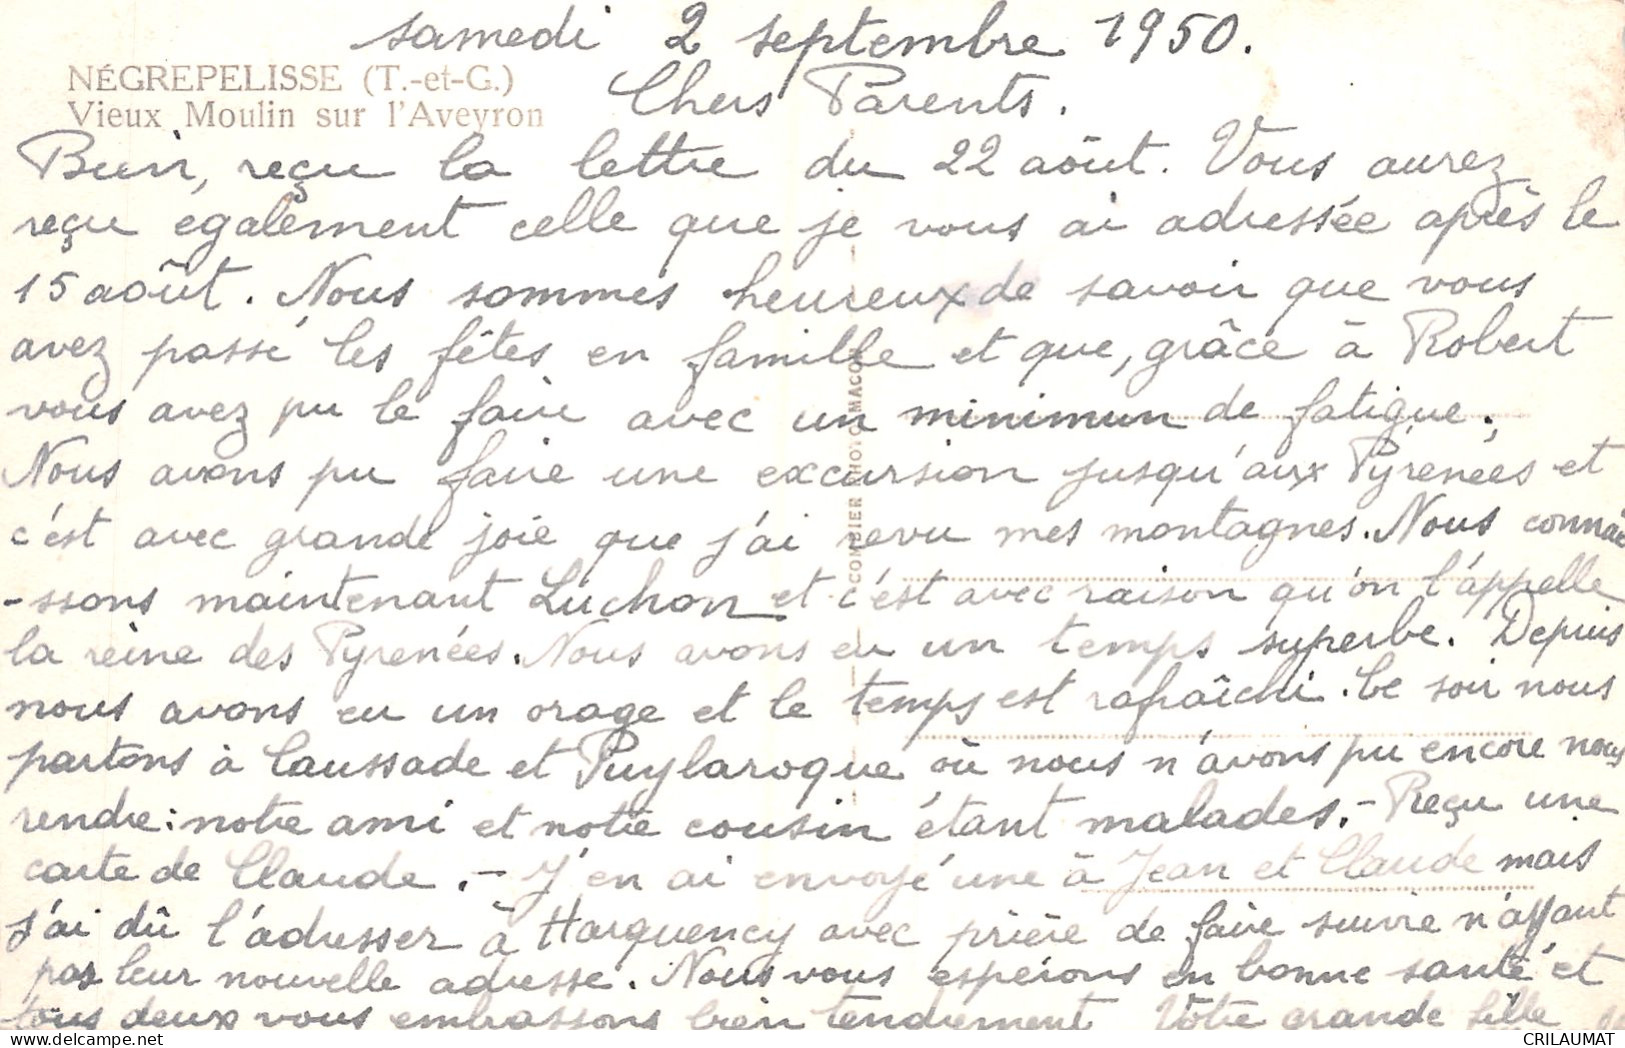 samedi 2 septembre 1950.
NÉGREPELISSE (T.-et-G.)
Vieux Moulin sur l'Aveyron
Chers Parents.
Bien reçu la lettre du 22 août. Vous aurez
reçu également celle que je vous ai adressée après le
15 août. Nous sommes heureux de savoir que vous
avez passé les fêtes en famille et que, grâce à Robert
vous avez pu le faire avec un minimun de fatigue.
Nous avons pu faire une excursion jusqu'aux Pyrénées et
c'est avec grande joie que j'ai revu mes montagnes. Nous connai
-ssons maintenant Luchon et c'est avec raison qu'on l'appelle
la reine des Pyrénées. Nous avons eu un temps superbe. Depuis
nous avons eu un orage et le temps est rafraîchi. Ce soir nous
partons à Caussade et Puylaroque où nous n'avons pu encore nous
rendre: notre ami et notre cousin étant malades. - Reçu une
carte de Claude. - J'en ai envoyé une à Jean et Claude mais
j'ai dû l'adresser à Harquency avec prière de faire suivre n'ayant
pas leur nouvelle adresse. Nous vous espérons en bonne santé et
tous deux vous embrassons bien tendrement Votre grande fille
COMBIER PHOTO MACON
CRILAUMAT